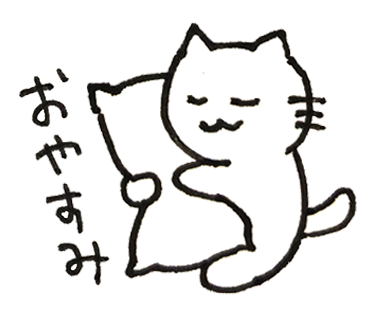 おやすみ